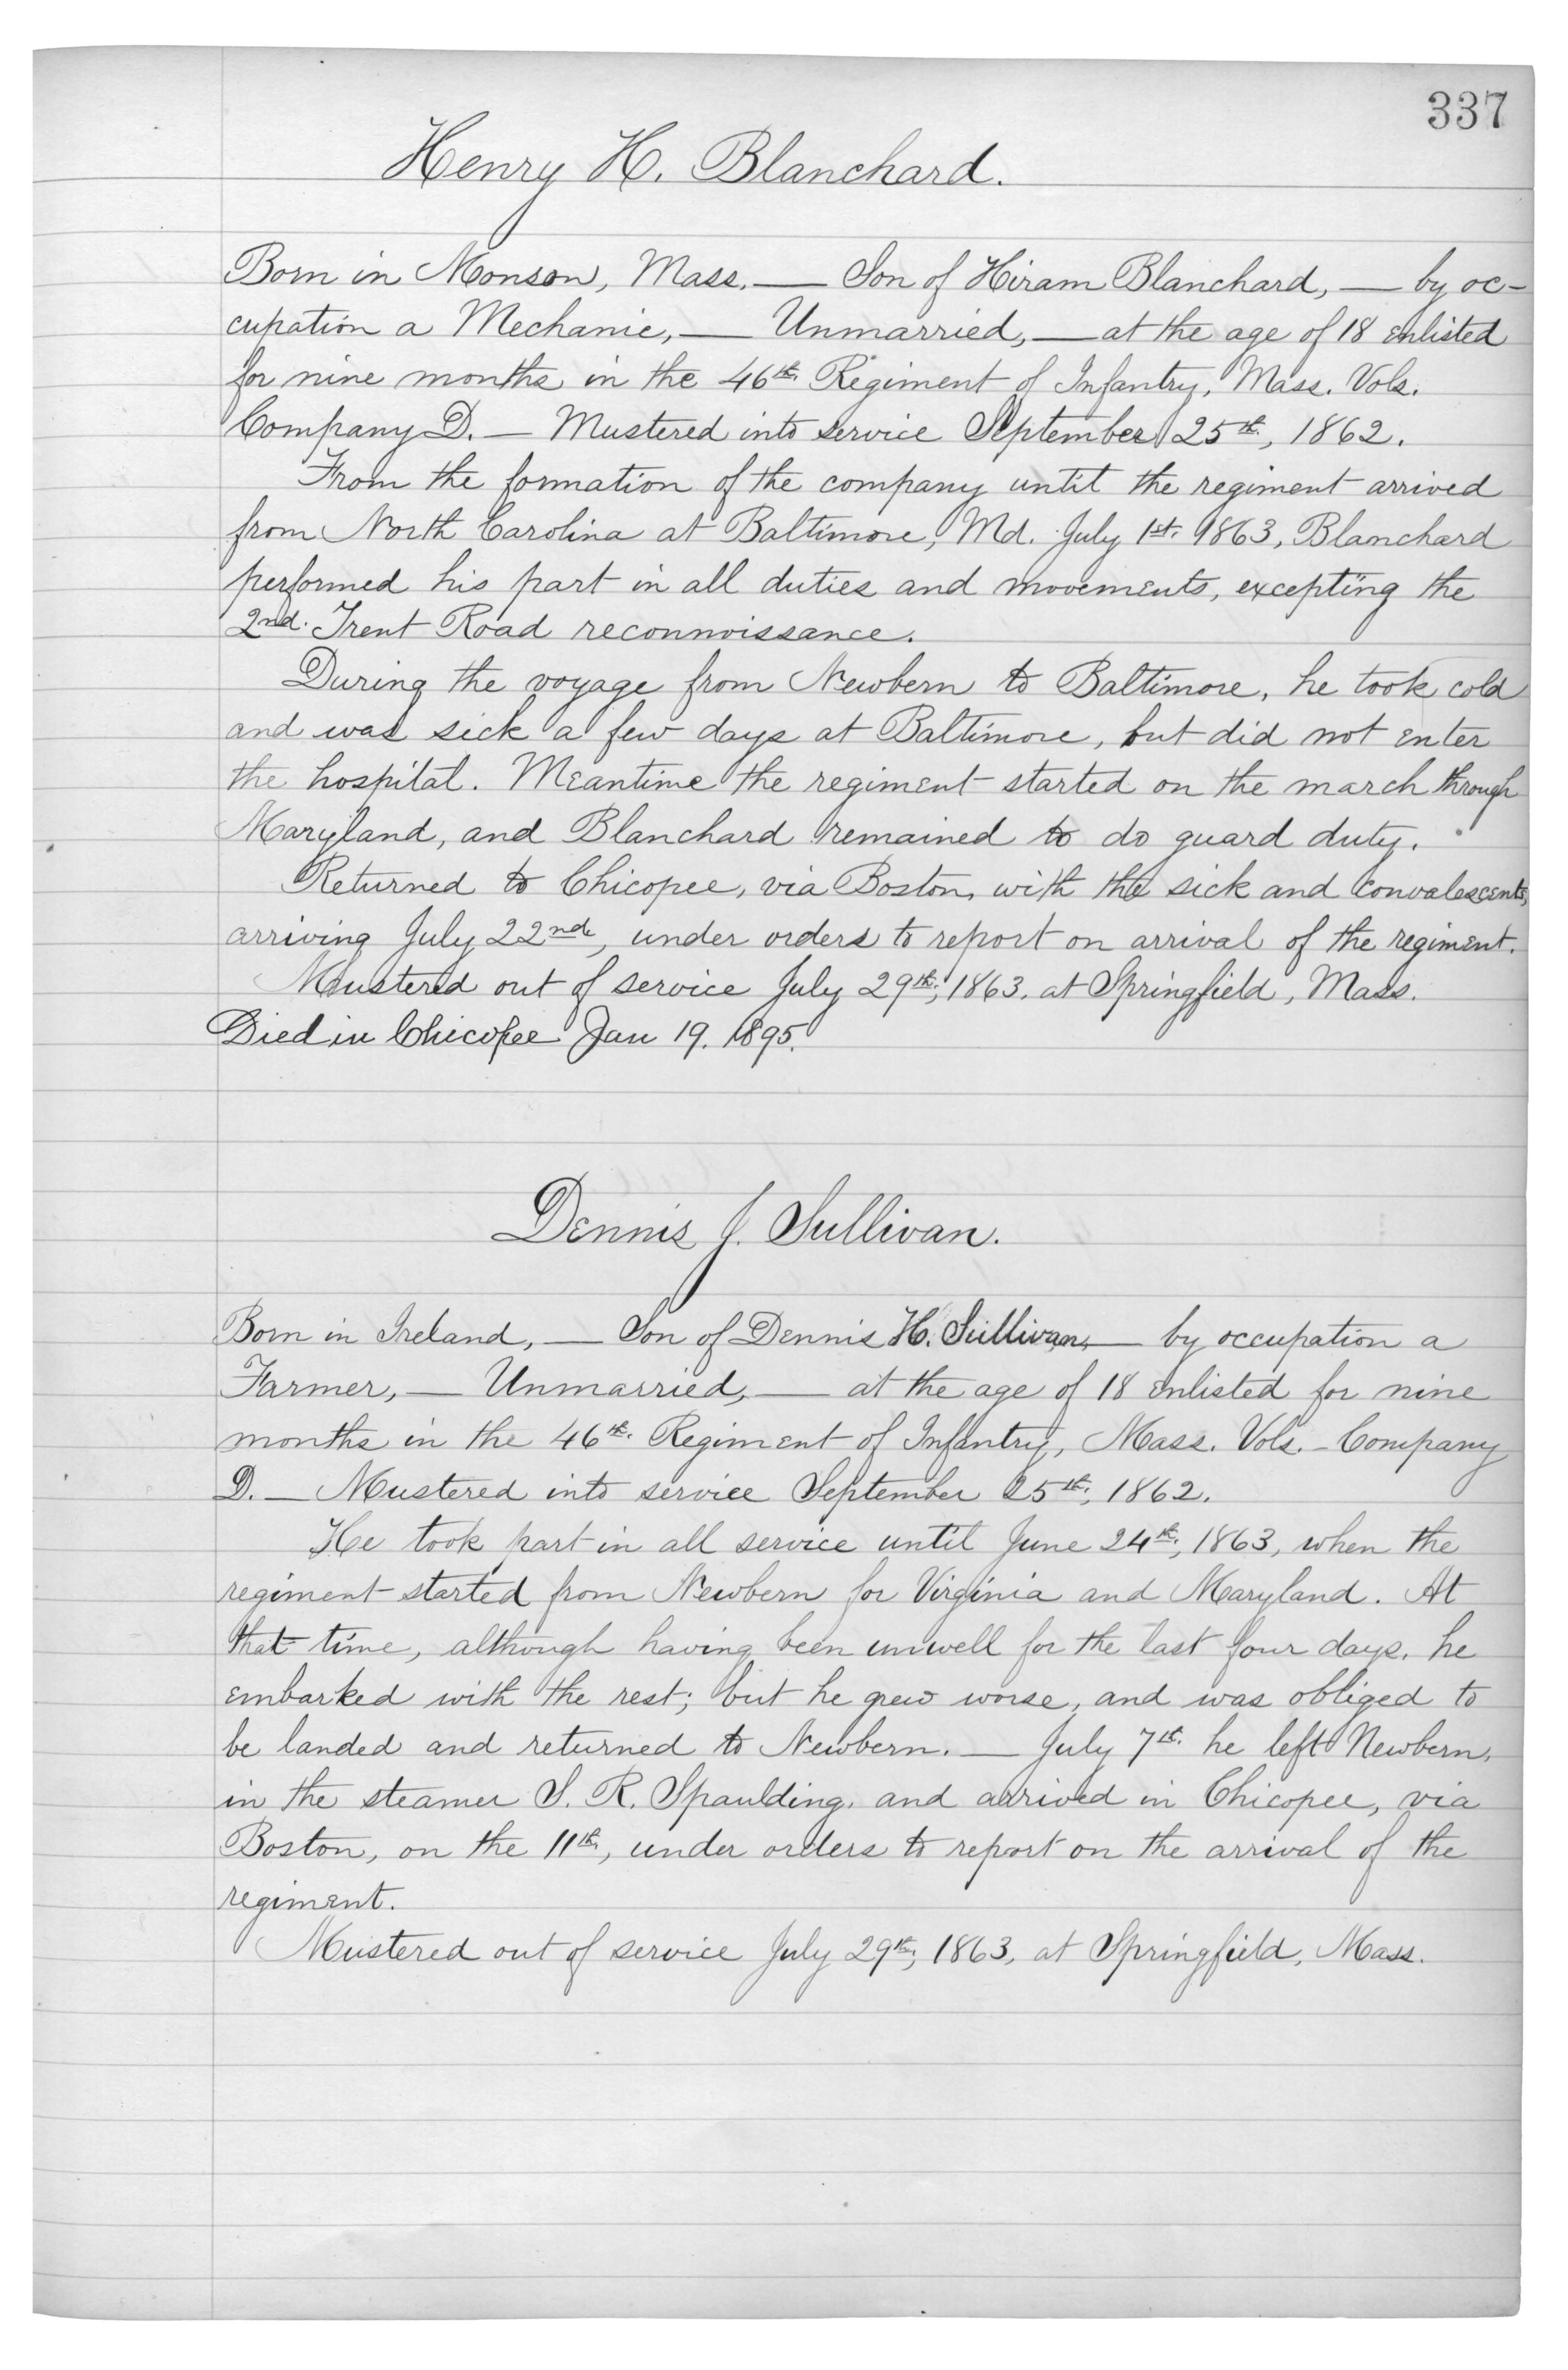 337
Henry H. Blanchard.
Born in Monson, Mass. — Son of Hiram Blanchard, — by oc-
cupation a Mechanic, — Unmarried, — at the age of 18 enlisted
for nine months in the 46th. Regiment of Infantry, Mass. Vols.
Company D. — Mustered into service September 25th, 1862.
From the formation of the company until the regiment arrived
from North Carolina at Baltimore, Md. July 1st. 1863, Blanchard
performed his part in all duties and movements, excepting the
2nd. Trent Road reconnoissance.
During the voyage from Newbern to Baltimore, he took cold
and was sick a few days at Baltimore, but did not enter
the hospital. Meantime the regiment started on the march through
Maryland, and Blanchard remained to do guard duty.
Returned to Chicopee, via Boston, with the sick and convalescents,
arriving July 22nd, under orders to report on arrival of the regiment.
Mustered out of service July 29th, 1863. at Springfield, Mass.
Died in Chicopee Jan 19. 1895.
Dennis J. Sullivan.
Born in Ireland, — Son of Dennis H. Sullivan, — by occupation a
Farmer, — Unmarried, — at the age of 18 enlisted for nine
months in the 46th. Regiment of Infantry, Mass. Vols. - Company
D. — Mustered into service September 25th, 1862.
He took part in all service until June 24th, 1863, when the
regiment started from Newbern for Virginia and Maryland. At
that time, although having been unwell for the last four days, he
embarked with the rest; but he grew worse, and was obliged to
be landed and returned to Newbern. — July 7th. he left Newbern,
in the steamer S. R. Spaulding, and arrived in Chicopee, via
Boston, on the 11th, under orders to report on the arrival of the
regiment.
Mustered out of service July 29th, 1863, at Springfield, Mass.